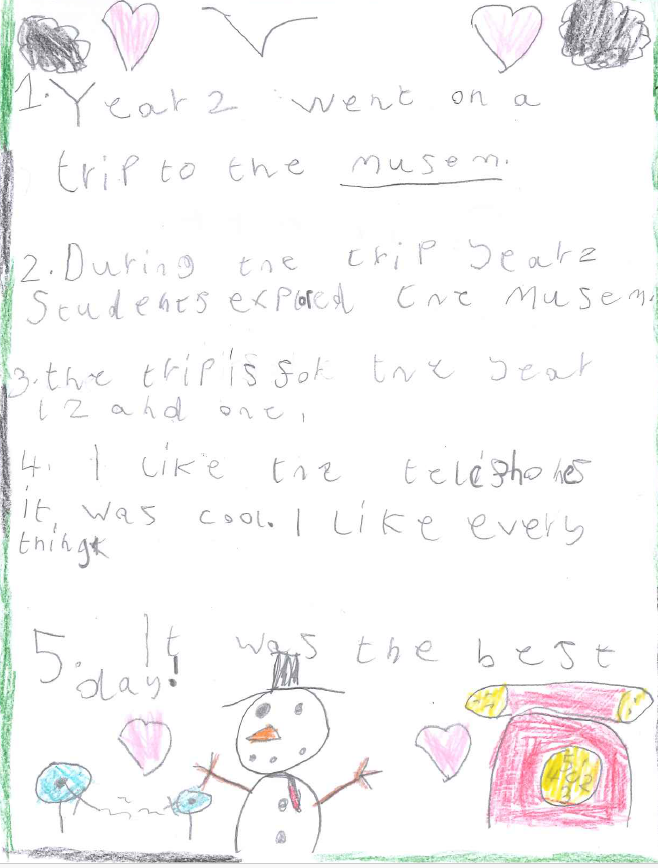 1. Year 2 went on a
trip to the musem.
2. During the trip year 2
Students explored the musem.
3. the trip is for the year
12 and one,
4. I like the telephones
it was cool. I like every
thing
5. It was the best
day!
5 1
4 0 2
3